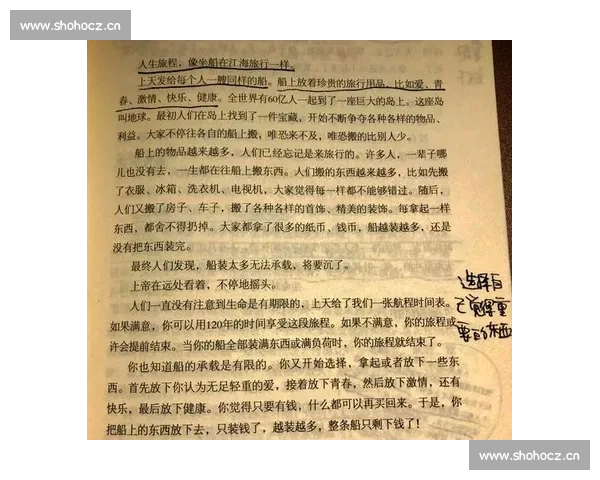 www.shohocz.cn
人生旅程，像坐船在江海旅行一样。
上天发给每个人一艘同样的船。船上放着珍贵的旅行用品，比如爱、青
春、激情、快乐、健康。全世界有60亿人一起到了一座巨大的岛上。这座岛
叫地球。最初人们在岛上找到了一件宝藏，开始不断争夺各种各样的物品、
利益。大家不停往各自的船上搬，唯恐来不及，唯恐搬的比别人少。
船上的物品越来越多，人们已经忘记是来旅行的。许多人，一辈子哪
儿也没有去，一生都在往船上搬东西。人们搬的东西越来越多，比如先搬
了衣服、冰箱、洗衣机、电视机，大家觉得每一样都不能够错过。随后，
人们又搬了房子、车子，搬了各种各样的首饰、精美的装饰。每拿起一样
东西，都舍不得扔掉。大家都拿了很多的纸币、钱币，船越装越多，还是
没有把东西装完。
最终人们发现，船装太多无法承载，将要沉了。
上帝在远处看着，不停地摇头。
人们一直没有注意到生命是有期限的，上天给了我们一张航程时间表。
如果满意，你可以用120年的时间享受这段旅程。如果不满意，你的旅程或
许会提前结束。当你的船全部装满东西或满负荷时，你的旅程就结束了。
你也知道船的承载是有限的。你又开始选择，拿起或者放下一些东
西。首先放下你认为无足轻重的爱，接着放下青春，然后放下激情，还有
快乐，最后放下健康。你觉得只要有钱，什么都可以再买回来。于是，你
把船上的东西放下去，只装钱了，越装越多，整条船只剩下钱了！
选择自
己觉得重
要的东西
www.shohocz.cn